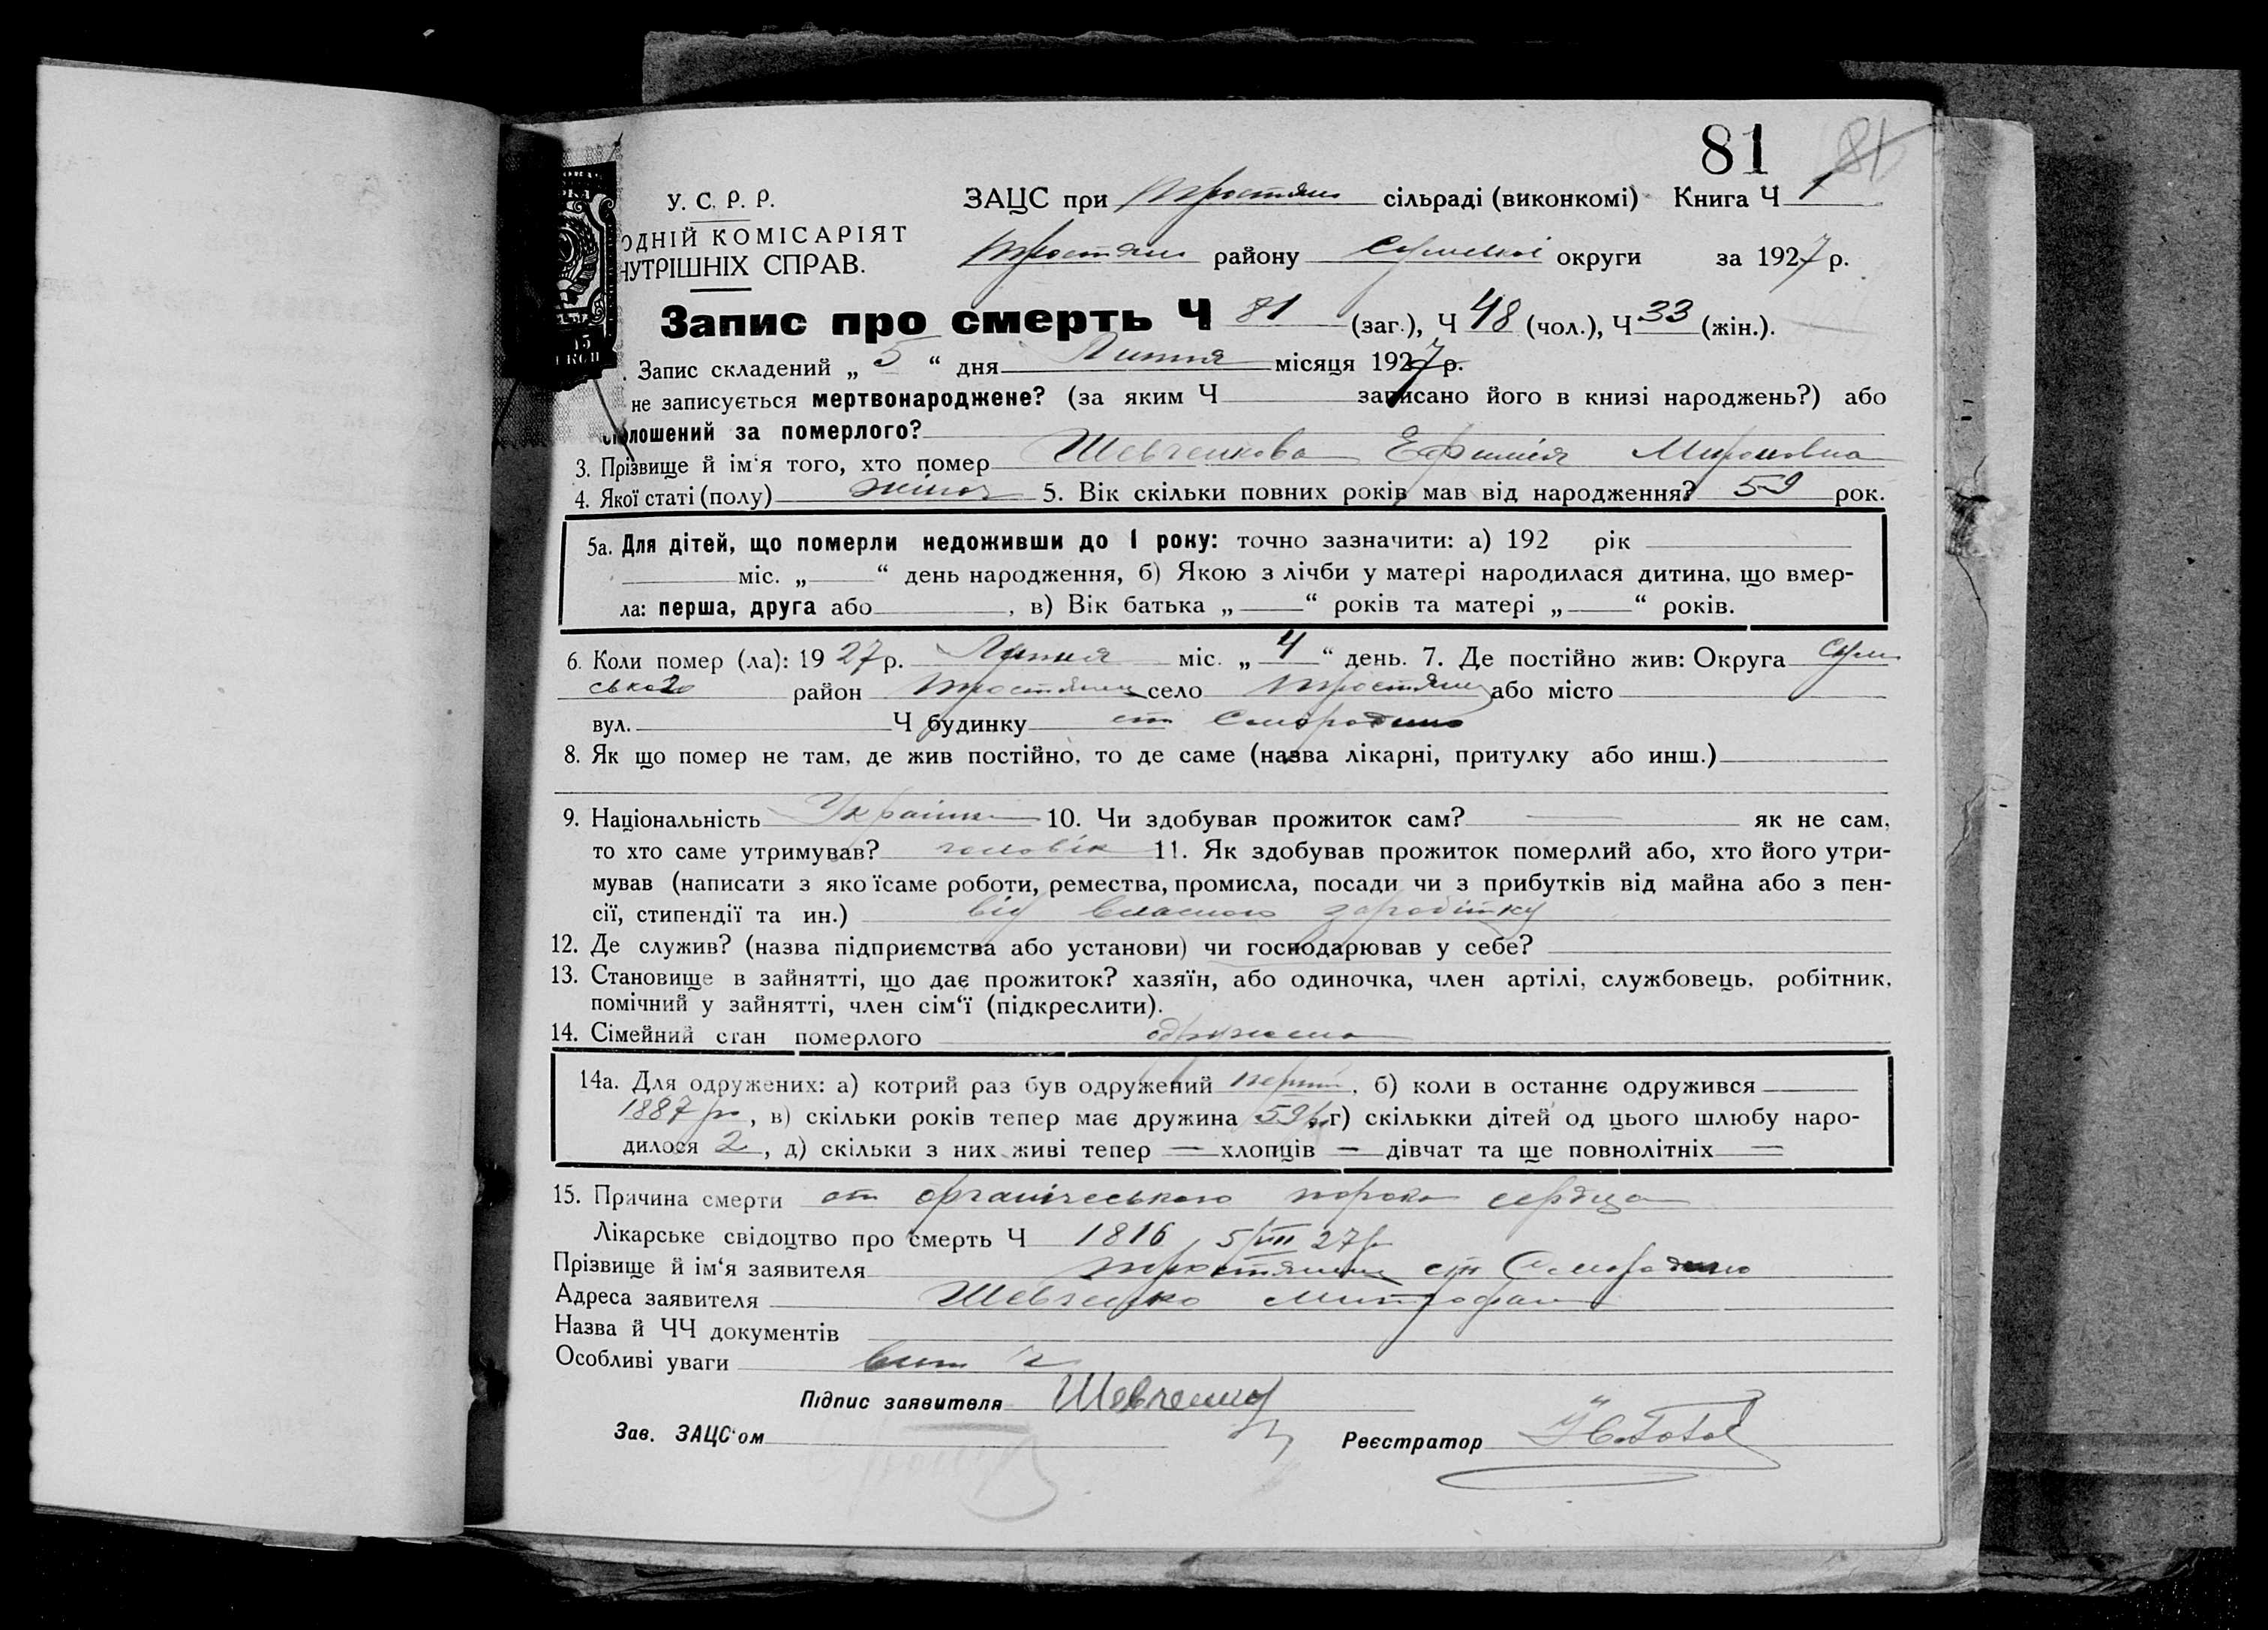 81 81
У. С. Р. Р. ЗАЦС при Тростян сільраді (виконкомі) Книга Ч 1
ОДНІЙ КОМІСАРІЯТ
НУТРІШНІХ СПРАВ.
Тростян району Сумської округи за 1927 р.
Запис про смерть Ч 81 (заг.), Ч 48 (чол.), Ч 33 (жін.).
Запис складений „ 5 “ дня Липня місяця 1927 р.
не записується мертвонароджене? (за яким Ч записано його в книзі народжень?) або
олошений за померлого?
3. Прізвище й ім‘я того, хто помер Шевченкова Ефимія Мироновна
4. Якої статі (полу) жіноч 5. Вік скільки повних років мав від народження? 59 рок.
5а. Для дітей, що померли недоживши до 1 року: точно зазначити: а) 192 рік
міс. „ “ день народження, б) Якою з лічби у матері народилася дитина, що вмер-
ла: перша, друга або , в) Вік батька „ “ років та матері „ “ років.
6. Коли помер (ла): 1927 р. Липня міс. „ 4 “ день. 7. Де постійно жив: Округа Сум
ська район Тростянец село Тростянец або місто
вул. Ч будинку ст Смородино
8. Як що помер не там, де жив постійно, то де саме (назва лікарні, притулку або инш.)
9. Національність Українк 10. Чи здобував прожиток сам? — як не сам,
то хто саме утримував? чоловік 11. Як здобував прожиток померлий або, хто його утри-
мував (написати з яко їсаме роботи, ремества, промисла, посади чи з прибутків від майна або з пен-
сії, стипендії та ин.) від власного заробітку
12. Де служив? (назва підприємства або установи) чи господарював у себе?
13. Становище в зайнятті, що дає прожиток? хазяїн, або одиночка, член артілі, службовець, робітник,
помічний у зайнятті, член сім‘ї (підкреслити).
14. Сімейний стан померлого одружена
14а. Для одружених: а) котрий раз був одружений перший, б) коли в останнє одружився
1887 р, в) скільки років тепер має дружина 59 г) скількки дітей од цього шлюбу наро-
дилося 2, д) скільки з них живі тепер — хлопців — дівчат та ще повнолітніх —
15. Причина смерти от органіческого порока сердца
Лікарське свідоцтво про смерть Ч 1816 5/VII 27 р
Прізвище й ім‘я заявителя Тростянец ст Смородино
Адреса заявителя Шевченко Митрофан
Назва й ЧЧ документів
Особливі уваги
Підпис заявителя Шевченко
Зав. ЗАЦС‘ом Реєстратор